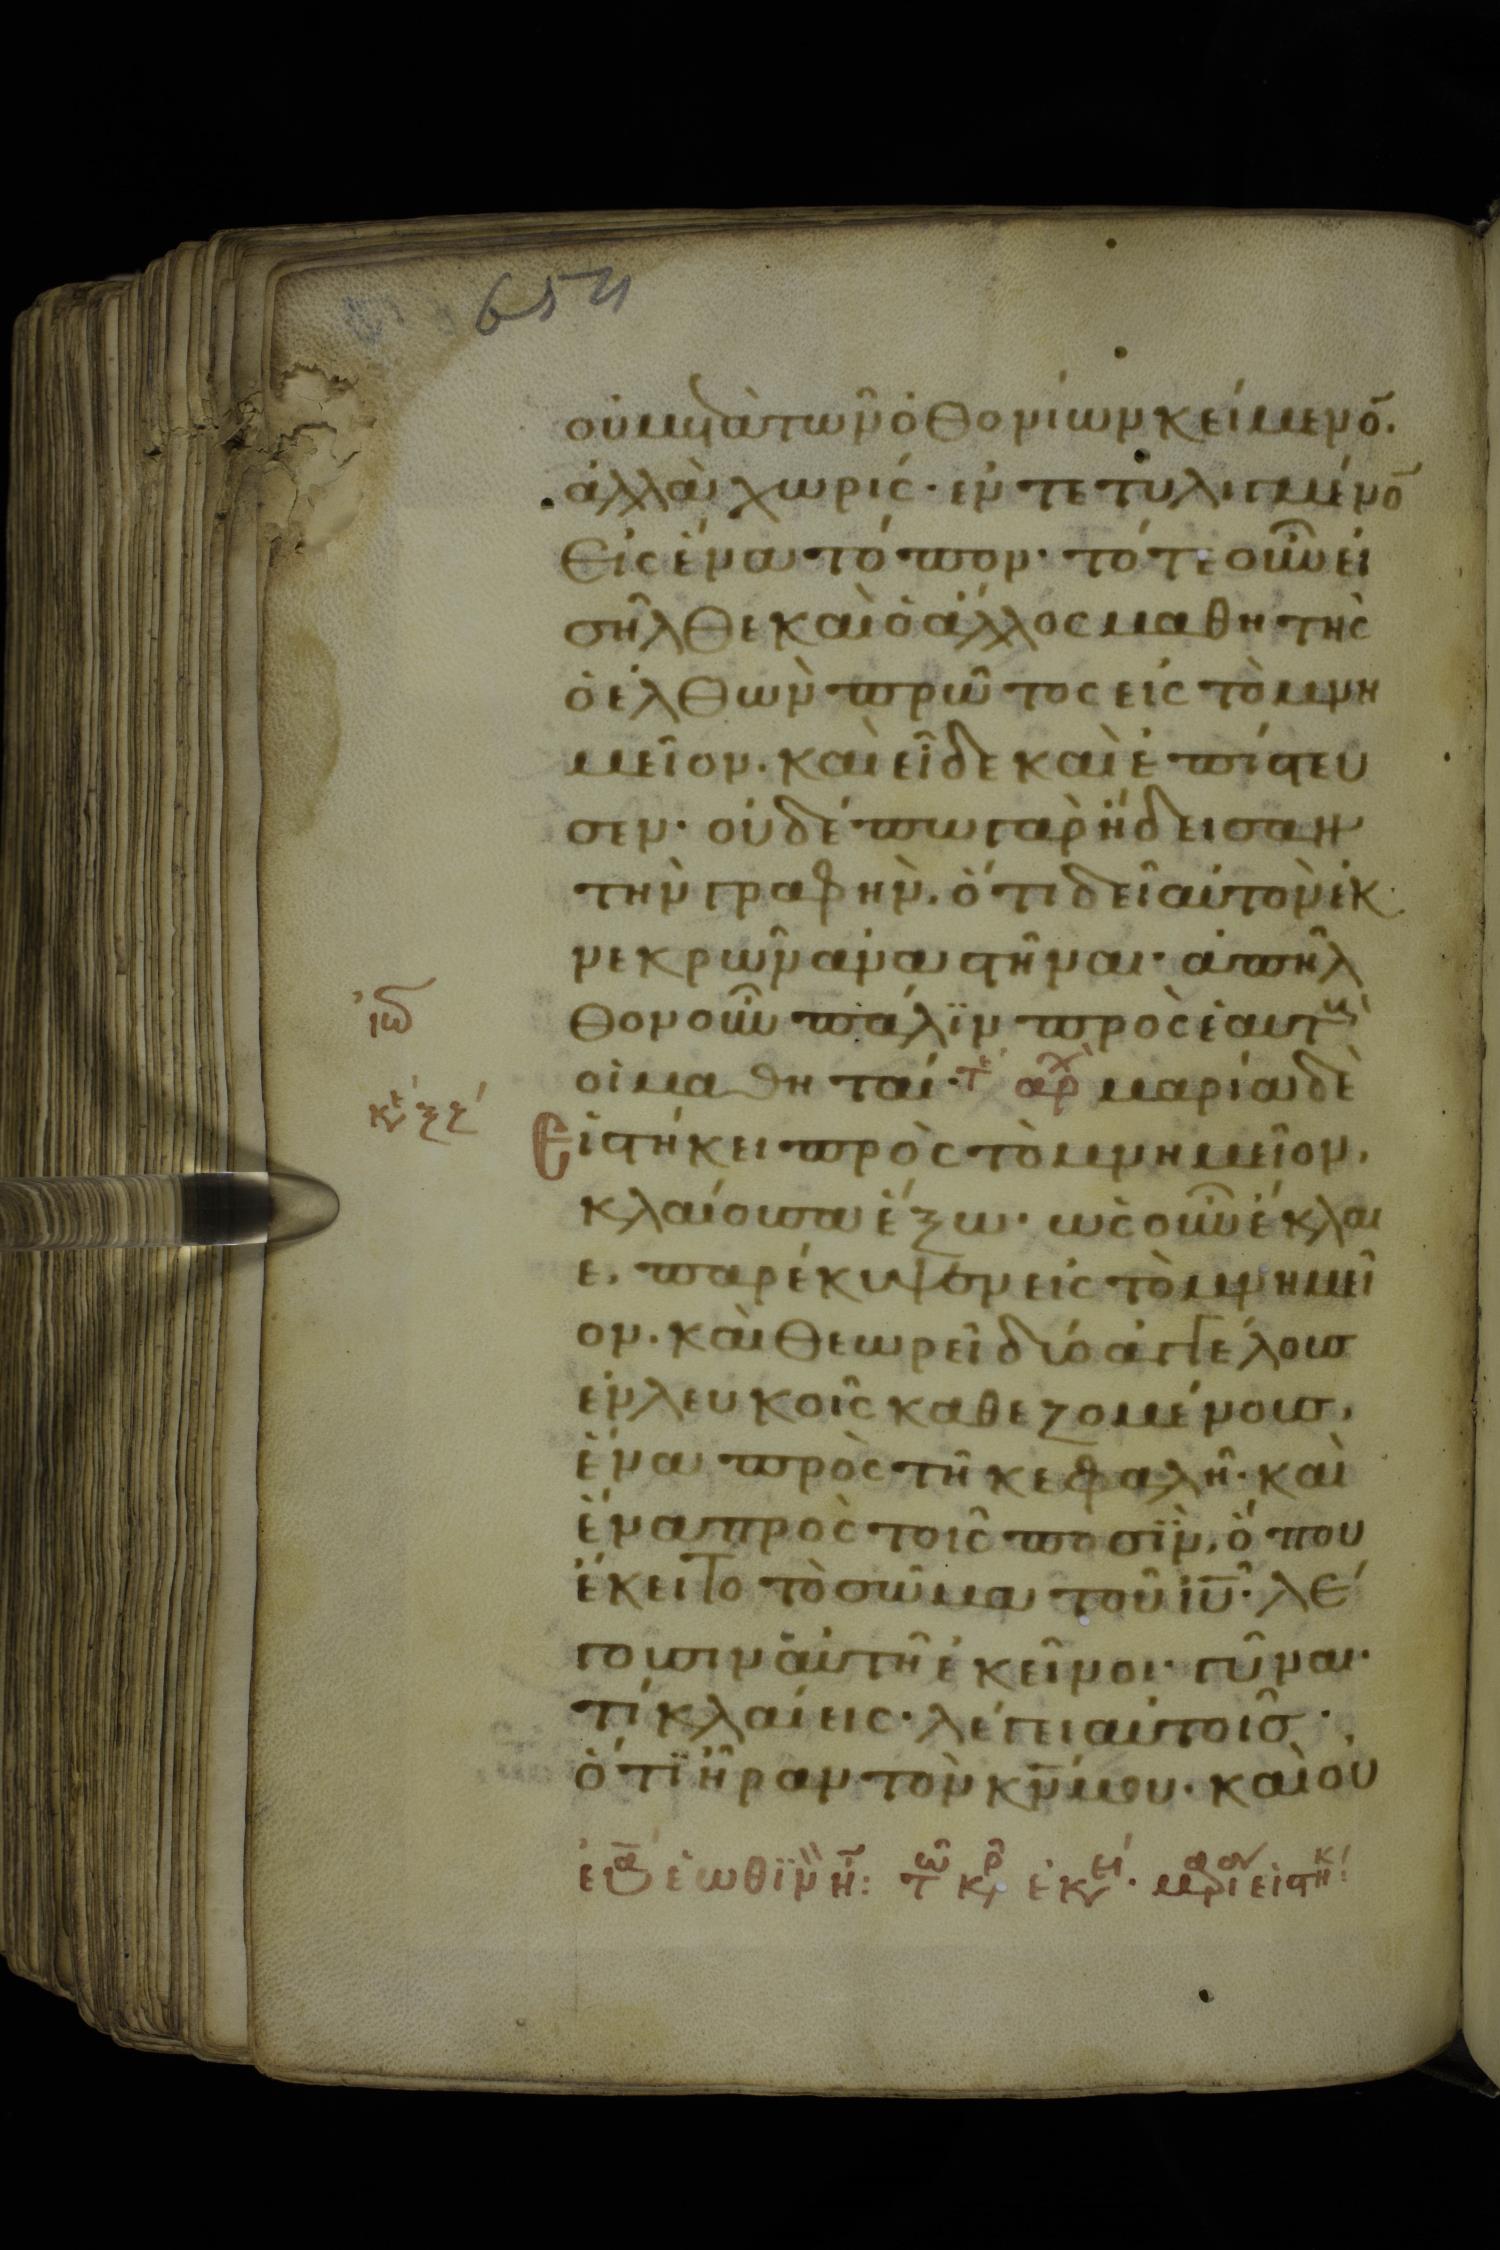 654
οὐ μετὰ τῶν ὀθονίων κείμενο̅.
ἀλλὰ χωρίς· ἐντετυλιγμένο̅
εἰς ἕνα τόπον· τότε οὖν εἰ
σῆλθε καὶ ὁ ἄλλος μαθητὴς
ὁ ἐλθὼν πρῶτος εἰς τὸ μνη
μεῖον. καὶ εἶδε καὶ ἐπίστευ
σεν· οὐδέπω γὰρ ἤδεισαν
τὴν γραφὴν, ὅτι δεῖ αὐτὸν ἐκ
νεκρῶν ἀναστῆναι· ἀπῆλ
θον οὖν πάλϊν πρὸς ἑαυτοὺς
οἱ μαθηταί· τε´ ἀρχ μαρία δὲ
εἱστήκει πρὸς τὸ μνημεῖον,
κλαίουσα ἔξω· ὡς οὖν ἔκλαι
ε, παρέκυψεν εἰς τὸ μνημεῖ
ον. καὶ θεωρεῖ δύο ἀγγέλους
ἐν λευκοῖς καθεζομένους,
ἕνα πρὸς τῇ κεφαλῇ· καὶ
ἕνα πρὸς τοῖς ποσῒν, ὅπου
ἔκειτο τὸ σῶμα τοῦ ἰ̅υ̅· λέ
γουσιν αὐτῇ ἐκεῖνοι· γύναι·
τί κλαίεις· λέγει αὐτοῖς·
ὅτϊ ἦραν τὸν κ̅ν̅ μου· καὶ οὐ